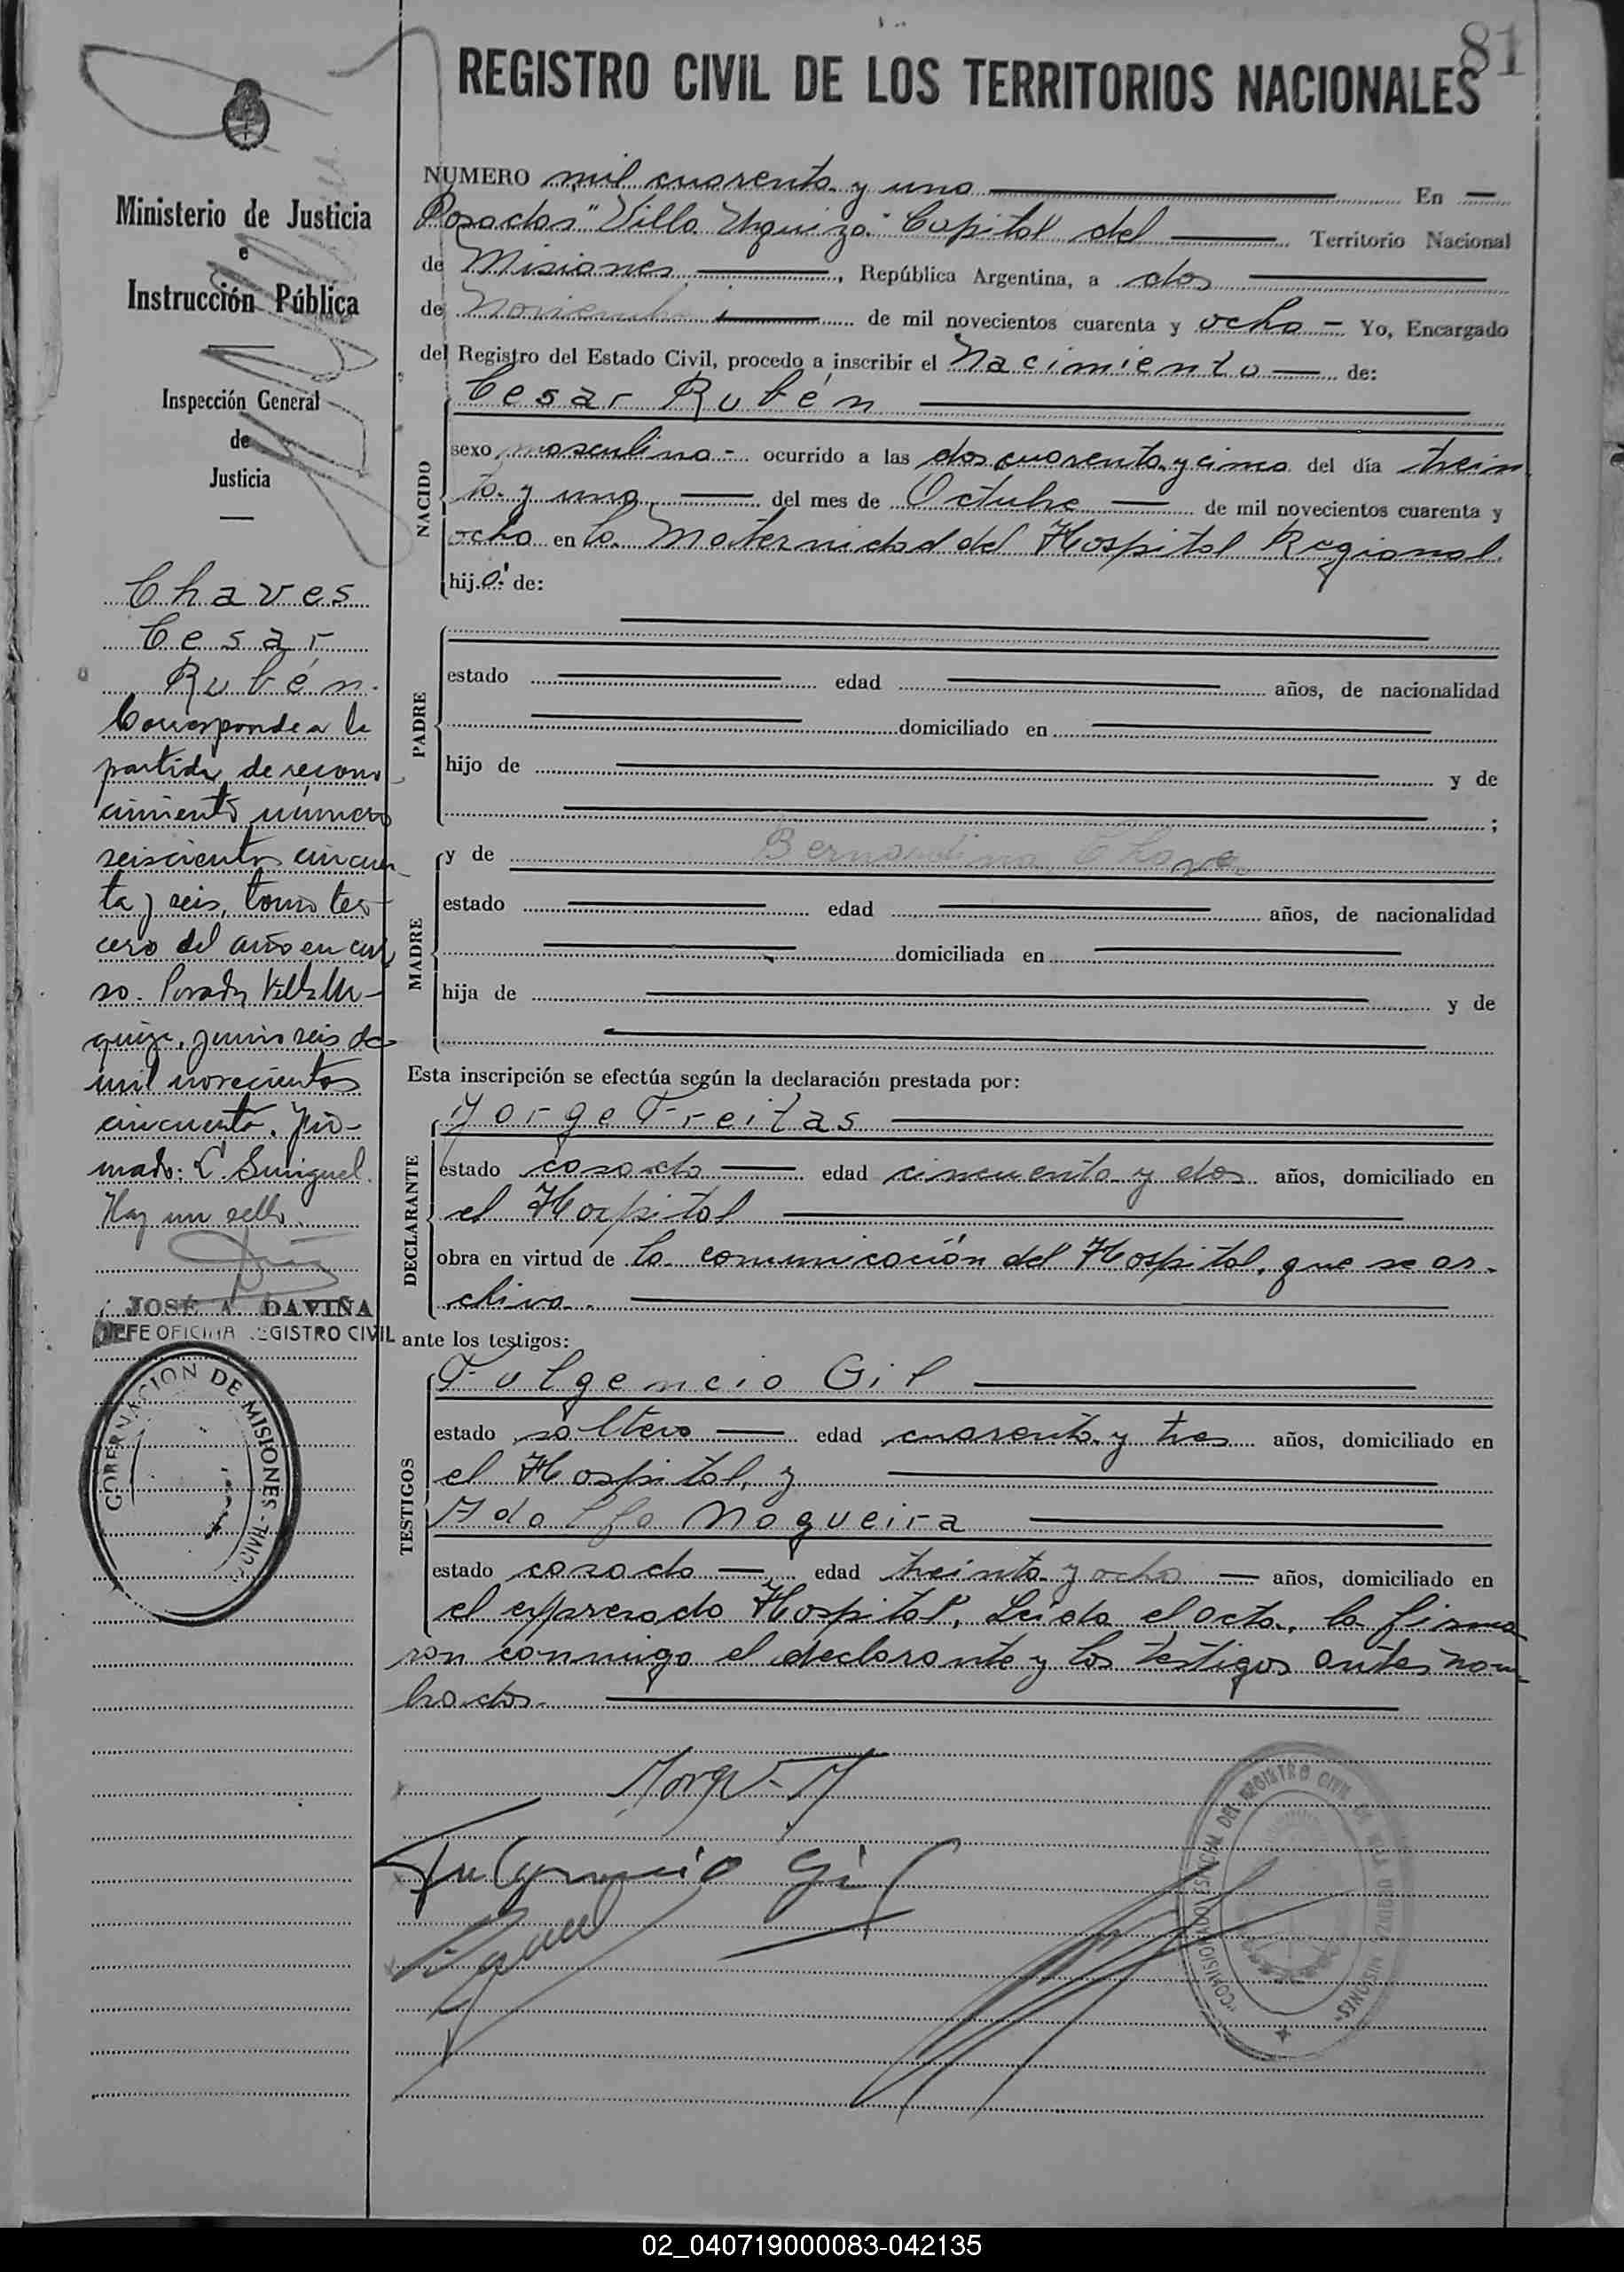 81
REGISTRO CIVIL DE LOS TERRITORIOS NACIONALES
Ministerio de Justicia
e
Instrucción Pública
Inspección General
de
Justicia
Chaves
Cesar
Rubén.
Corresponde a la
partida de recono-
cimiento número
seiscientos cincuen-
ta y seis, tomo ter-
cero del año en cur-
so. Posadas Villa Ur-
quiza, junio seis de
mil novecientos
cincuenta. Fir-
mado: C. Suniguel.
Hay un sello.
JOSÉ A. DAVIÑA
JEFE OFICINA REGISTRO CIVIL
GOBERNACION DE MISIONES
NUMERO mil cuarenta y uno En
Posadas "Villa Urquiza" Capital del Territorio Nacional
de Misiones, República Argentina, a dos
de Noviembre de mil novecientos cuarenta y ocho Yo, Encargado
del Registro del Estado Civil, procedo a inscribir el Nacimiento de:
NACIDO
Cesar Rubén
sexo masculino - ocurrido a las dos cuarenta y cinco del día trein
ta y uno del mes de Octubre de mil novecientos cuarenta y
ocho en la Maternidad del Hospital Regional.
hijo de:
PADRE
estado edad años, de nacionalidad
domiciliado en
hijo de y de
;
MADRE
y de Bernardina Chave
estado edad años, de nacionalidad
domiciliada en
hija de y de
Esta inscripción se efectúa según la declaración prestada por:
DECLARANTE
Jorge Freitas
estado casado edad cincuenta y dos años, domiciliado en
el Hospital
obra en virtud de la comunicación del Hospital, que se ar-
chiva.
ante los testigos:
TESTIGOS
Fulgencio Gil
estado soltero edad cuarenta y tres años, domiciliado en
el Hospital, y
Adolfo Nogueira
estado casado edad treinta y ocho años, domiciliado en
el expresado Hospital. Leida el acta, la firma
ron conmigo el declarante y los testigos antes nom-
brados.
Fulgencio Gil
COMISIONADO ESPECIAL DEL REGISTRO CIVIL DE VILLA URQUIZA MISIONES
02_040719000083-042135